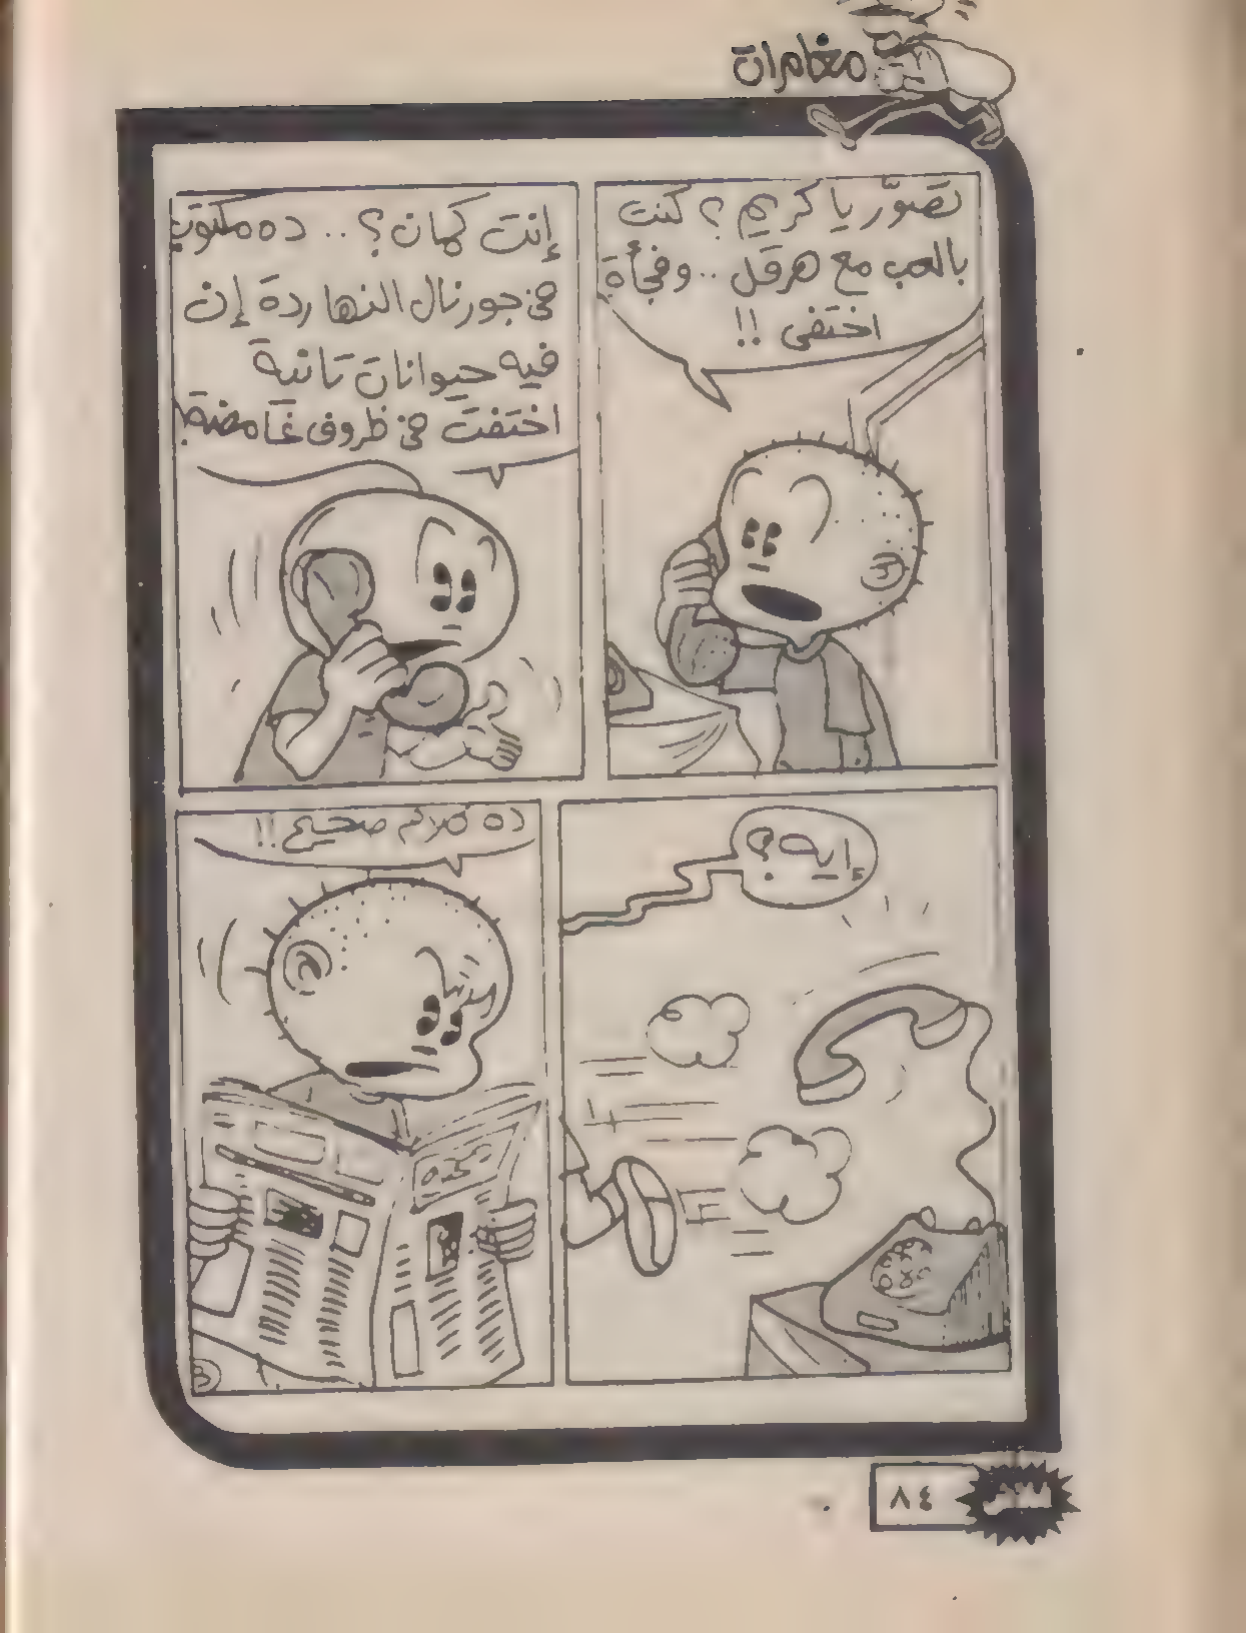 مغامرات
تصوّر يا كريم؟ كنت
بالعب مع هرقل.. وفجأة
اختفى!!
إنت كمان؟.. ده مكتوب
في جورنال النهارده إن
فيه حيوانات تانية
اختفت في ظروف غامضة!
إيه؟
ده كلام صحيح!!
٨٤